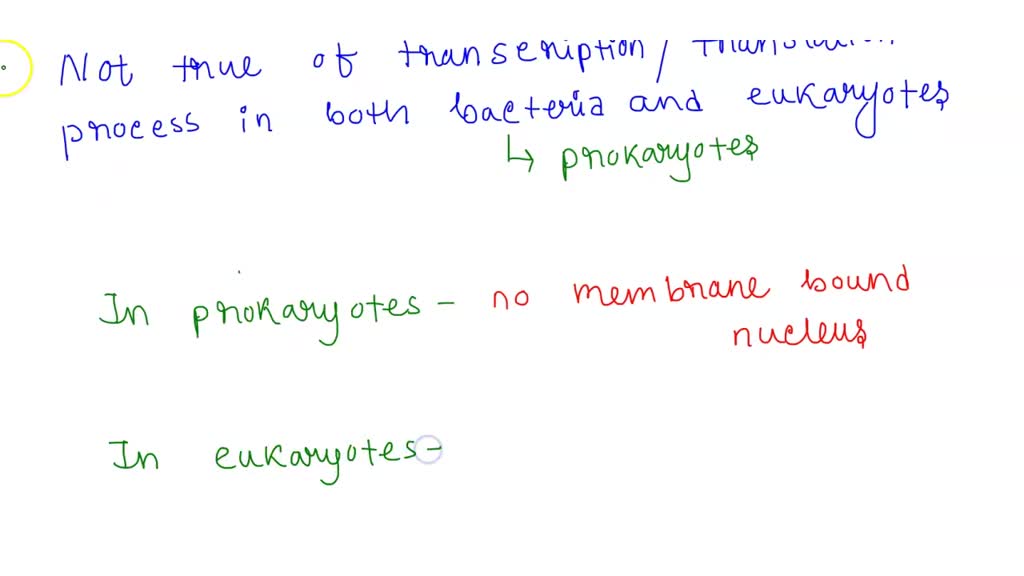 Not true of transcription/ translation
process in both bacteria and eukaryotes
↳ prokaryotes
In prokaryotes - no membrane bound
nucleus
In eukaryotes -